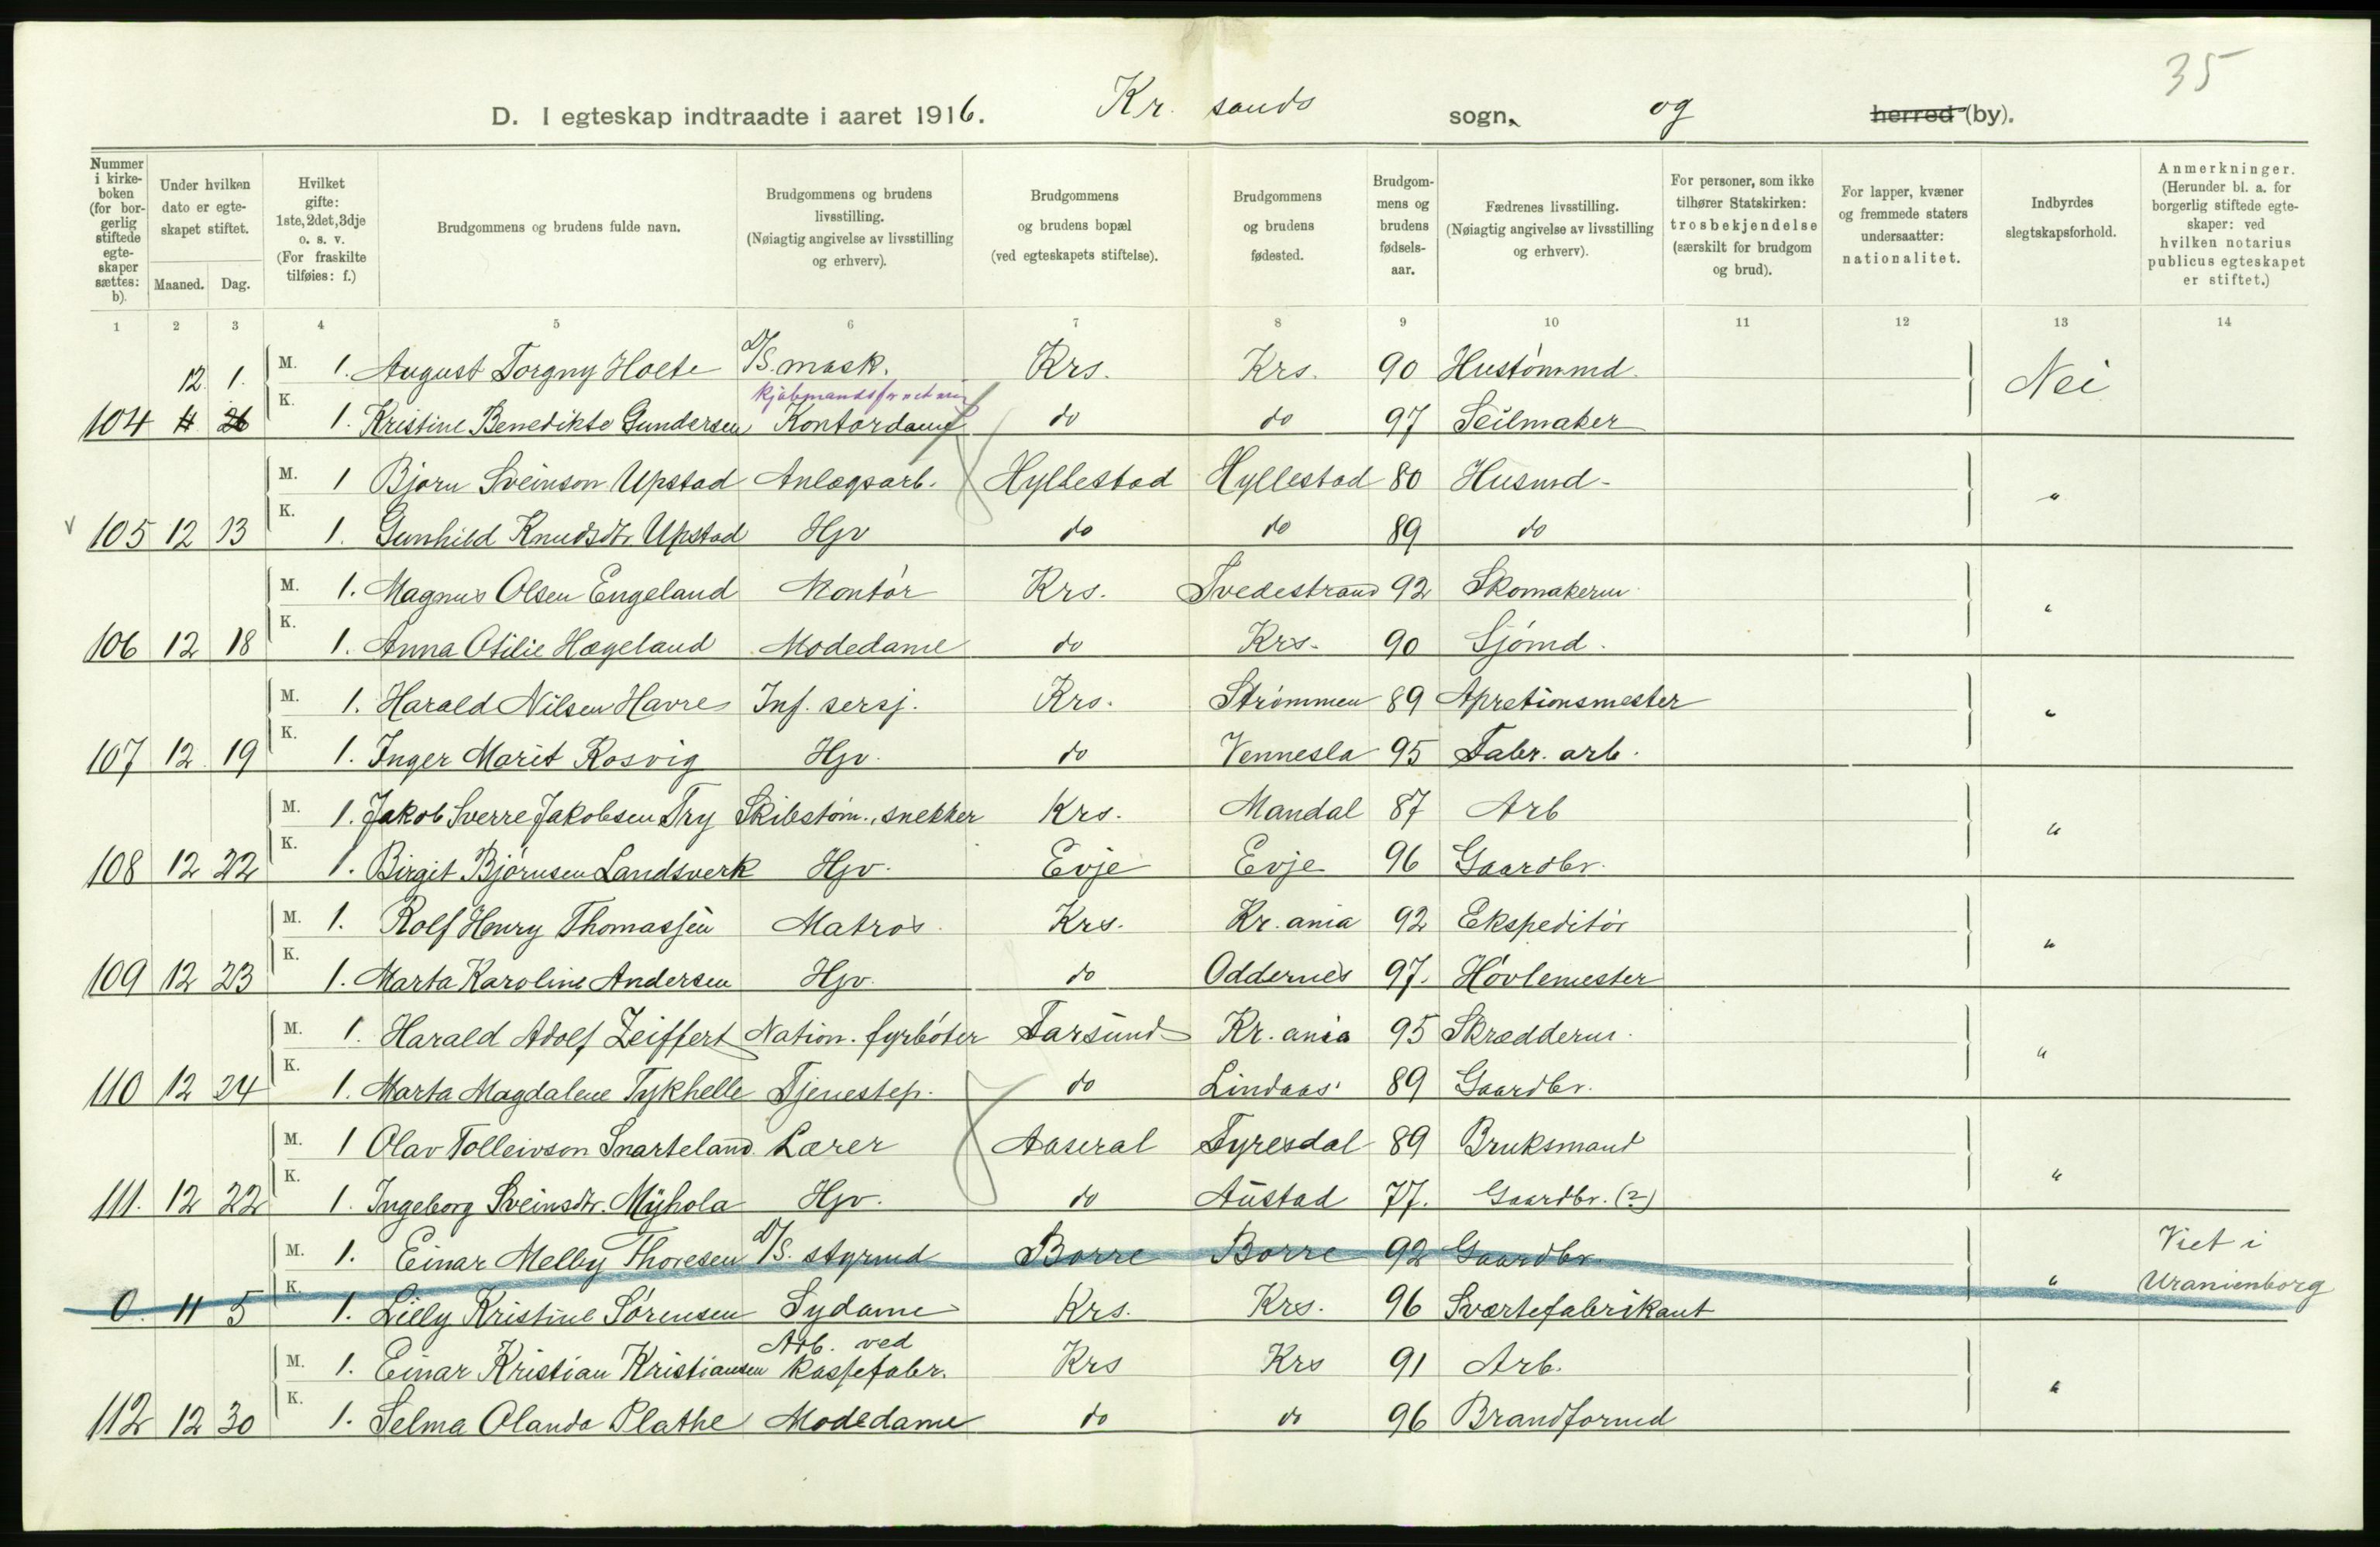 35
D. I egteskap indtraadte i aaret 1916. Kr. sands sogn, og herred (by).
Nummer i kirkeboken (for borgerlig stiftede egteskaper sættes: b).
Under hvilken dato er egteskapet stiftet.
Maaned. Dag.
Hvilket gifte: 1ste, 2det, 3dje o. s. v. (For fraskilte tilføies: f.)
Brudgommens og brudens fulde navn.
Brudgommens og brudens livsstilling. (Nøiagtig angivelse av livsstilling og erhverv).
Brudgommens og brudens bopæl (ved egteskapets stiftelse).
Brudgommens og brudens fødested.
Brudgommens og brudens fødselsaar.
Fædrenes livsstilling. (Nøiagtig angivelse av livsstilling og erhverv).
For personer, som ikke tilhører Statskirken: trosbekjendelse (særskilt for brudgom og brud).
For lapper, kvæner og fremmede staters undersaatter: nationalitet.
Indbyrdes slegtskapsforhold.
Anmerkninger. (Herunder bl. a. for borgerlig stiftede egteskaper: ved hvilken notarius publicus egteskapet er stiftet.)
1 2 3 4 5 6 7 8 9 10 11 12 13 14
12. 1. M. 1. August Torgny Holte D/S. mask. Krs. Krs. 90 Hustømmd. Nei
kjøbmandsforretning
104 11 26 K. 1. Kristine Benedikte Gundersen Kontordame do do 97 Seilmaker
M. 1 Bjørn Sveinson Upstad Anlægsarb. Hyllestad Hyllestad 80 Husmd - "
v 105 12 13 K. 1. Gunhild Knudsdtr Upstad Hjv do do 89 do
M. 1. Magnus Olsen Engeland Montør Krs. Tvedestrand 92 Skomakerm. "
106 12 18 K. 1. Anna Otilie Hægeland Modedame do Krs. 90 Sjømd.
M. 1. Harald Nilsen Havre Inf. sersj. Krs. Strømmen 89 Apretionsmester "
107 12. 19 K. 1. Inger Marit Rosvig Hjv. do Vennesla 95 Fabr. arb.
M. 1. Jakob Sverre Jakobsen Try Skibstøm., snekker Krs. Mandal 87 Arb "
108 12 22 K. 1. Birgit Bjørnsen Landsverk Hjv. Evje Evje 96 Gaardbr.
M. 1. Rolf Henry Thomassen Matros Krs. Kr. ania 92 Ekspeditør "
109 12 23 K. 1. Marta Karoline Andersen Hjv. do Oddernes 97. Høvlemester
M. 1. Harald Adolf Zeiffert Nation. fyrbøter Farsund Kr. ania 95 Skrædderm. "
110 12 24 K. 1. Marta Magdalene Tykhelle Tjenestep. do Lindaas 89 Gaardbr.
M. 1 Olav Tolleivson Snarteland Lærer Aaseral Fyresdal 89 Bruksmand "
111. 12 22 K. 1. Ingeborg Sveinsdtr. Myhola Hjv. do Austad 77. Gaardbr. (?)
M. 1. Einar Melby Thoresen D/S. styrmd Borre Borre 92 Gaardbr. " Viet i
0. 11 5 K. 1. Lilly Kristine Sørensen Sydame Krs. Krs. 96 Sværtefabrikant Uranienborg
Arb. ved
M. 1. Einar Kristian Kristiansen kassefabr. Krs Krs 91 Arb. "
112 12 30 K. 1. Selma Olanda Plathe Modedame do do 96 Brandformd